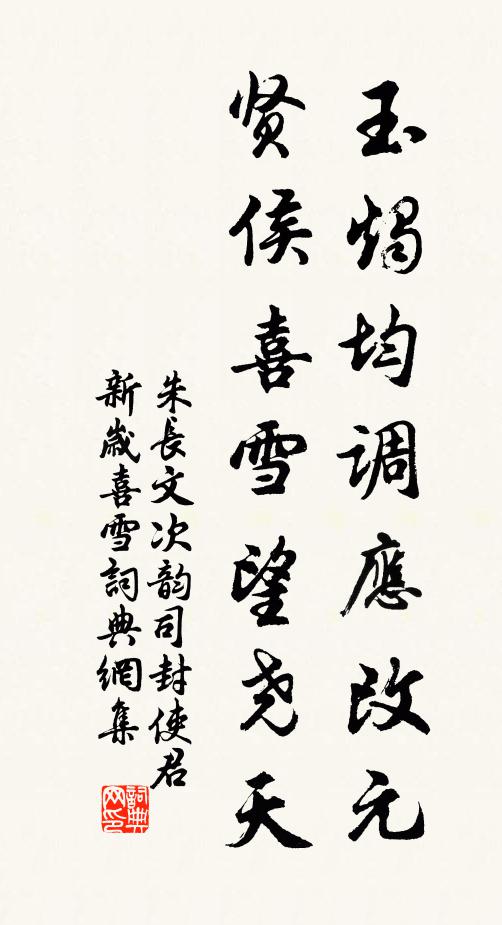 玉烛均调應改元
贤侯喜雪望尧天
朱長文次韵司封使君
新歲喜雪詞典網集
詞典
网印